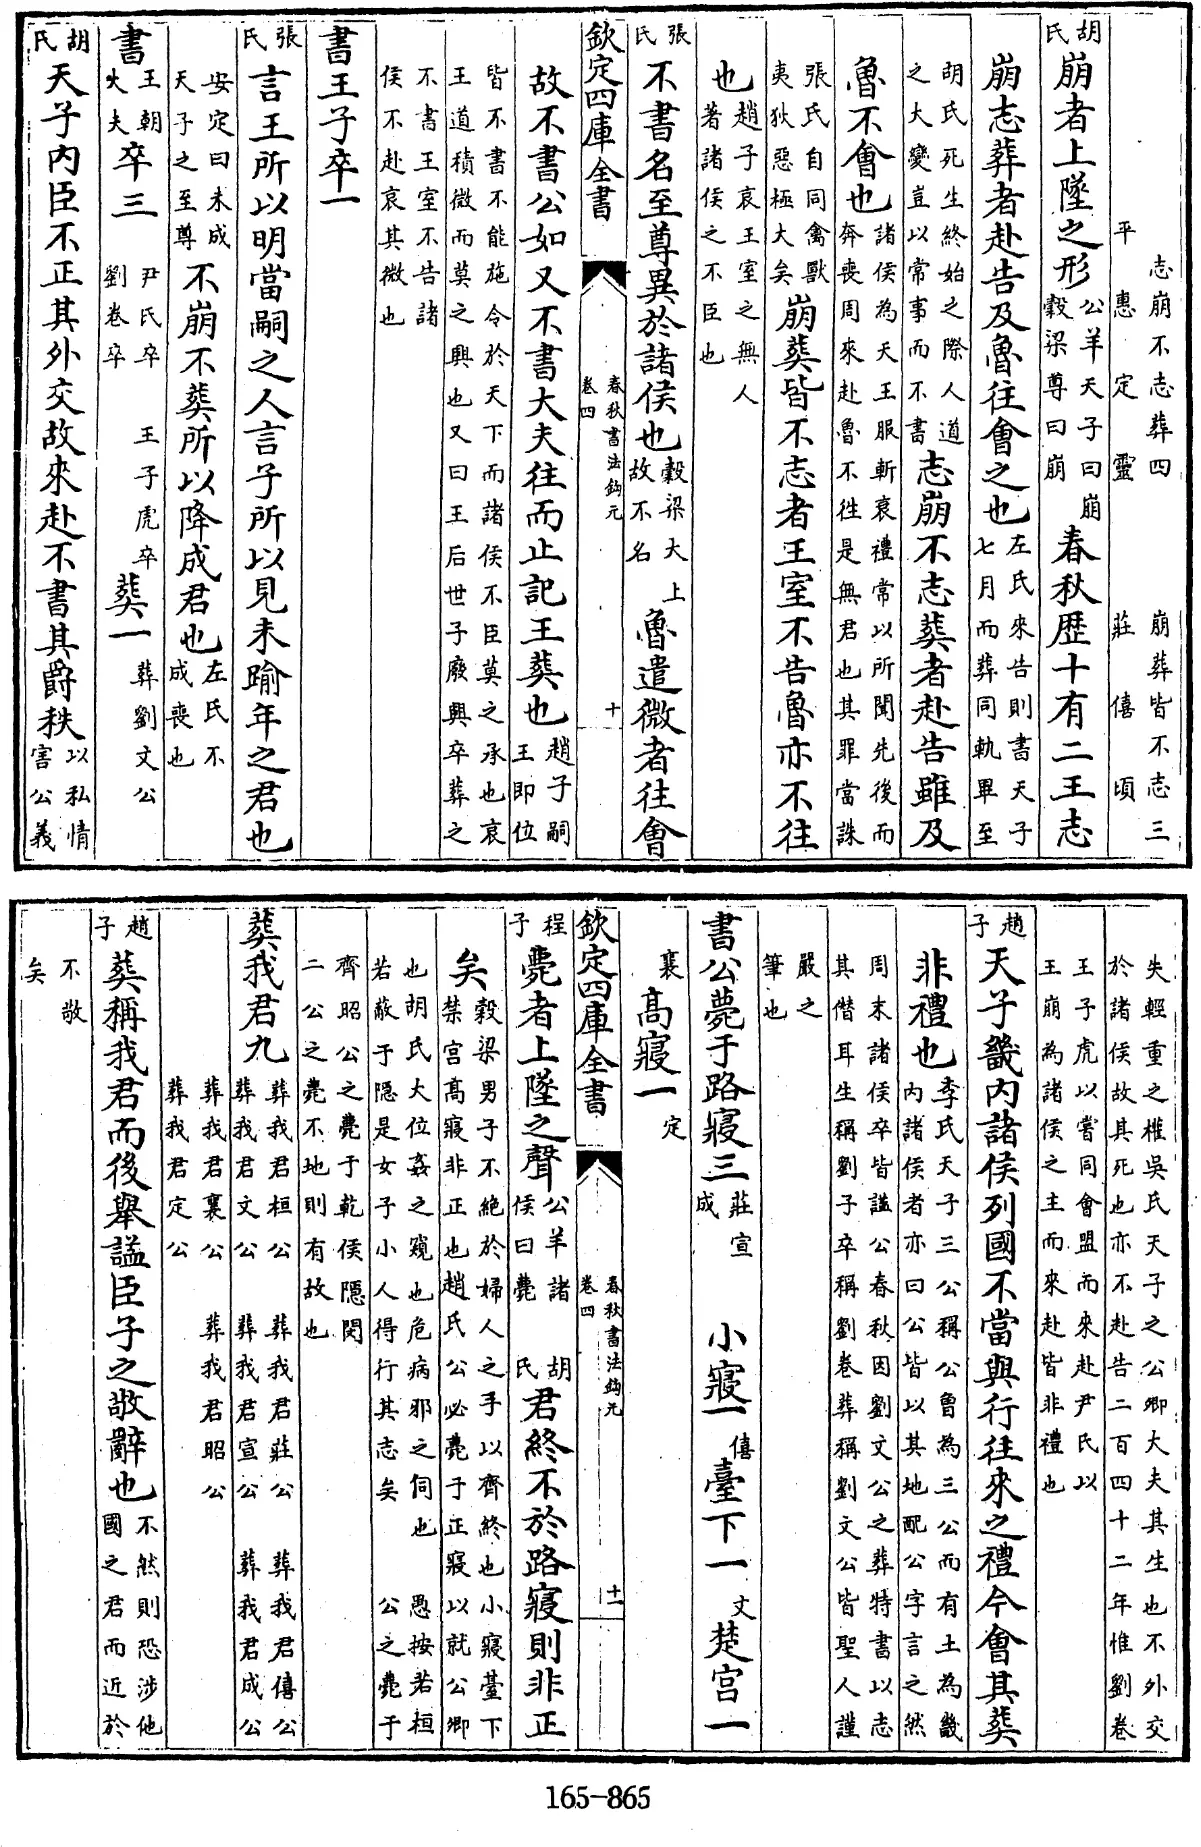 志崩不志葬四　崩葬皆不志三
平　惠　定　靈　莊　僖　頃
胡氏崩者上墜之形公羊天子曰崩穀梁尊曰崩春秋歴十有二王志
崩志葬者赴告及魯往會之也左氏來告則書天子七月而葬同軌畢至
胡氏死生終始之際人道之大變豈以常事而不書志崩不志葬者赴告雖及
魯不會也諸侯為天王服斬衰禮當以所聞先後而奔喪周來赴魯不徃是無君也其罪當誅
張氏自同禽獸夷狄惡極大矣崩葬皆不志者王室不告魯亦不往
也趙子哀王室之無人著諸侯之不臣也
張氏不書名至尊異於諸侯也穀梁大上故不名魯遣微者往會
欽定四庫全書　春秋書法鈎元　卷四　十
故不書公如又不書大夫往而止記王葬也趙子嗣王即位
皆不書不能施令於天下而諸侯不臣莫之承也哀王道積微而莫之興也又曰王后世子廢興卒葬之
不書王室不告諸侯不赴哀其微也
書王子卒一
張氏言王所以明當嗣之人言子所以見未踰年之君也
安定曰未成天子之至尊不崩不葬所以降成君也左氏不成喪也
書王朝大夫卒三尹氏卒　王子虎卒劉卷卒葬一葬劉文公
胡氏天子内臣不正其外交故來赴不書其爵秩以私情害公義
失輕重之權吳氏天子之公卿大夫其生也不外交於諸侯故其死也亦不赴告二百四十二年惟劉卷
王子虎以嘗同會盟而來赴尹氏以王崩為諸侯之主而來赴皆非禮也
趙子天子畿内諸侯列國不當與行往來之禮今會其葬
非禮也李氏天子三公稱公魯為三公而有土為畿内諸侯者亦曰公皆以其地配公字言之然
周末諸侯卒皆諡公春秋因劉文公之葬特書以志其僭耳生稱劉子卒稱劉卷葬稱劉文公皆聖人謹
嚴之筆也
書公薨于路寢三莊宣成　小寢一僖臺下一文楚宫一
襄高寢一定
欽定四庫全書　春秋書法鈎元　卷四　十一
程子薨者上墜之聲公羊諸侯曰薨　胡氏君終不於路寢則非正
矣穀梁男子不絶於婦人之手以齊終也小寢臺下禁宫高寢非正也趙氏公必薨于正寢以就公卿
也胡氏大位姦之窺也危病邪之伺也若蔽于隠是女子小人得行其志矣　愚按若桓公之薨于
齊昭公之薨于乾侯隠閔二公之薨不地則有故也
葬我君九葬我君桓公　葬我君莊公　葬我君僖公葬我君文公　葬我君宣公　葬我君成公
葬我君襄公　葬我君昭公葬我君定公
趙子葬稱我君而後舉諡臣子之敬辭也不然則恐涉他國之君而近於
不敬矣
165-865